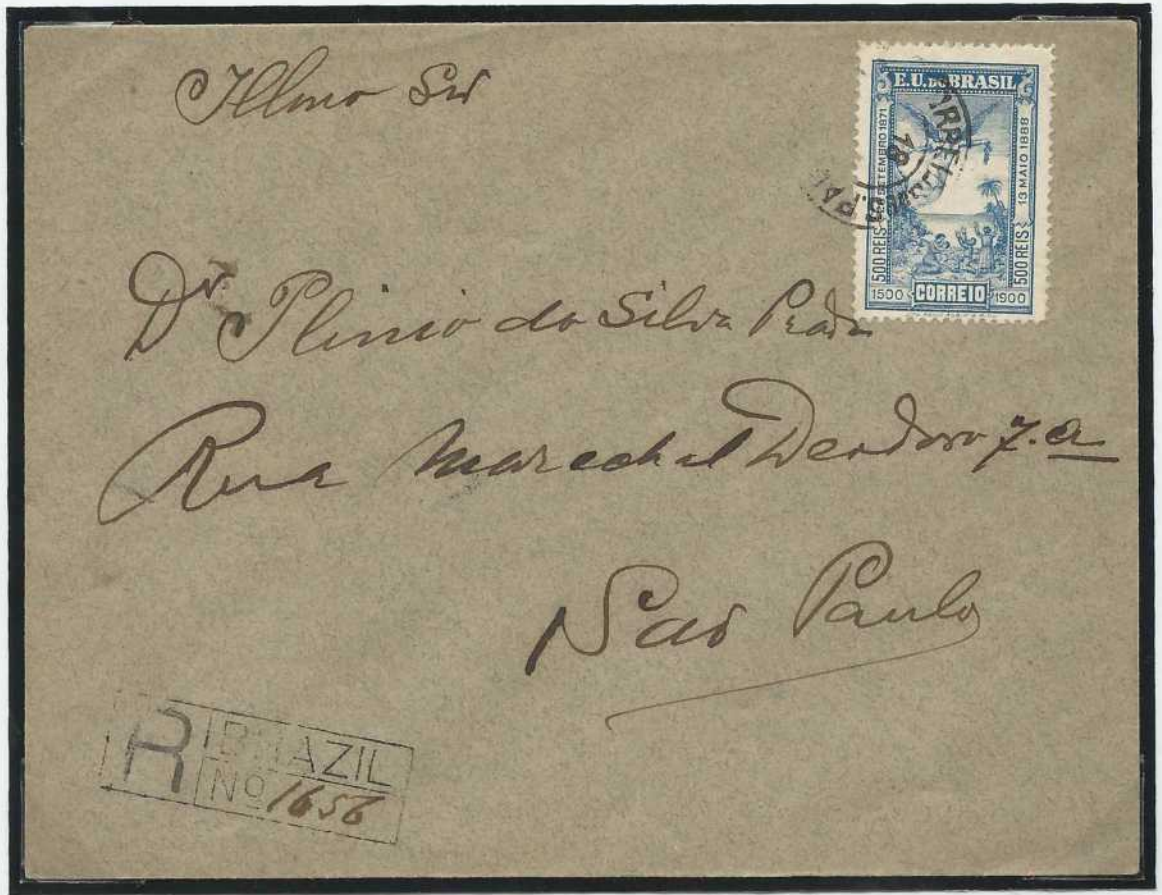 Illmo Snr
E.U. DO BRASIL
SETEMBRO 1871
13 MAIO 1888
500 REIS
500 REIS
1500 CORREIO 1900
Dr Plinio da Silva Prado
Rua Marechal Deodoro 7.a
Sao Paulo
R BRAZIL
Nº 1656